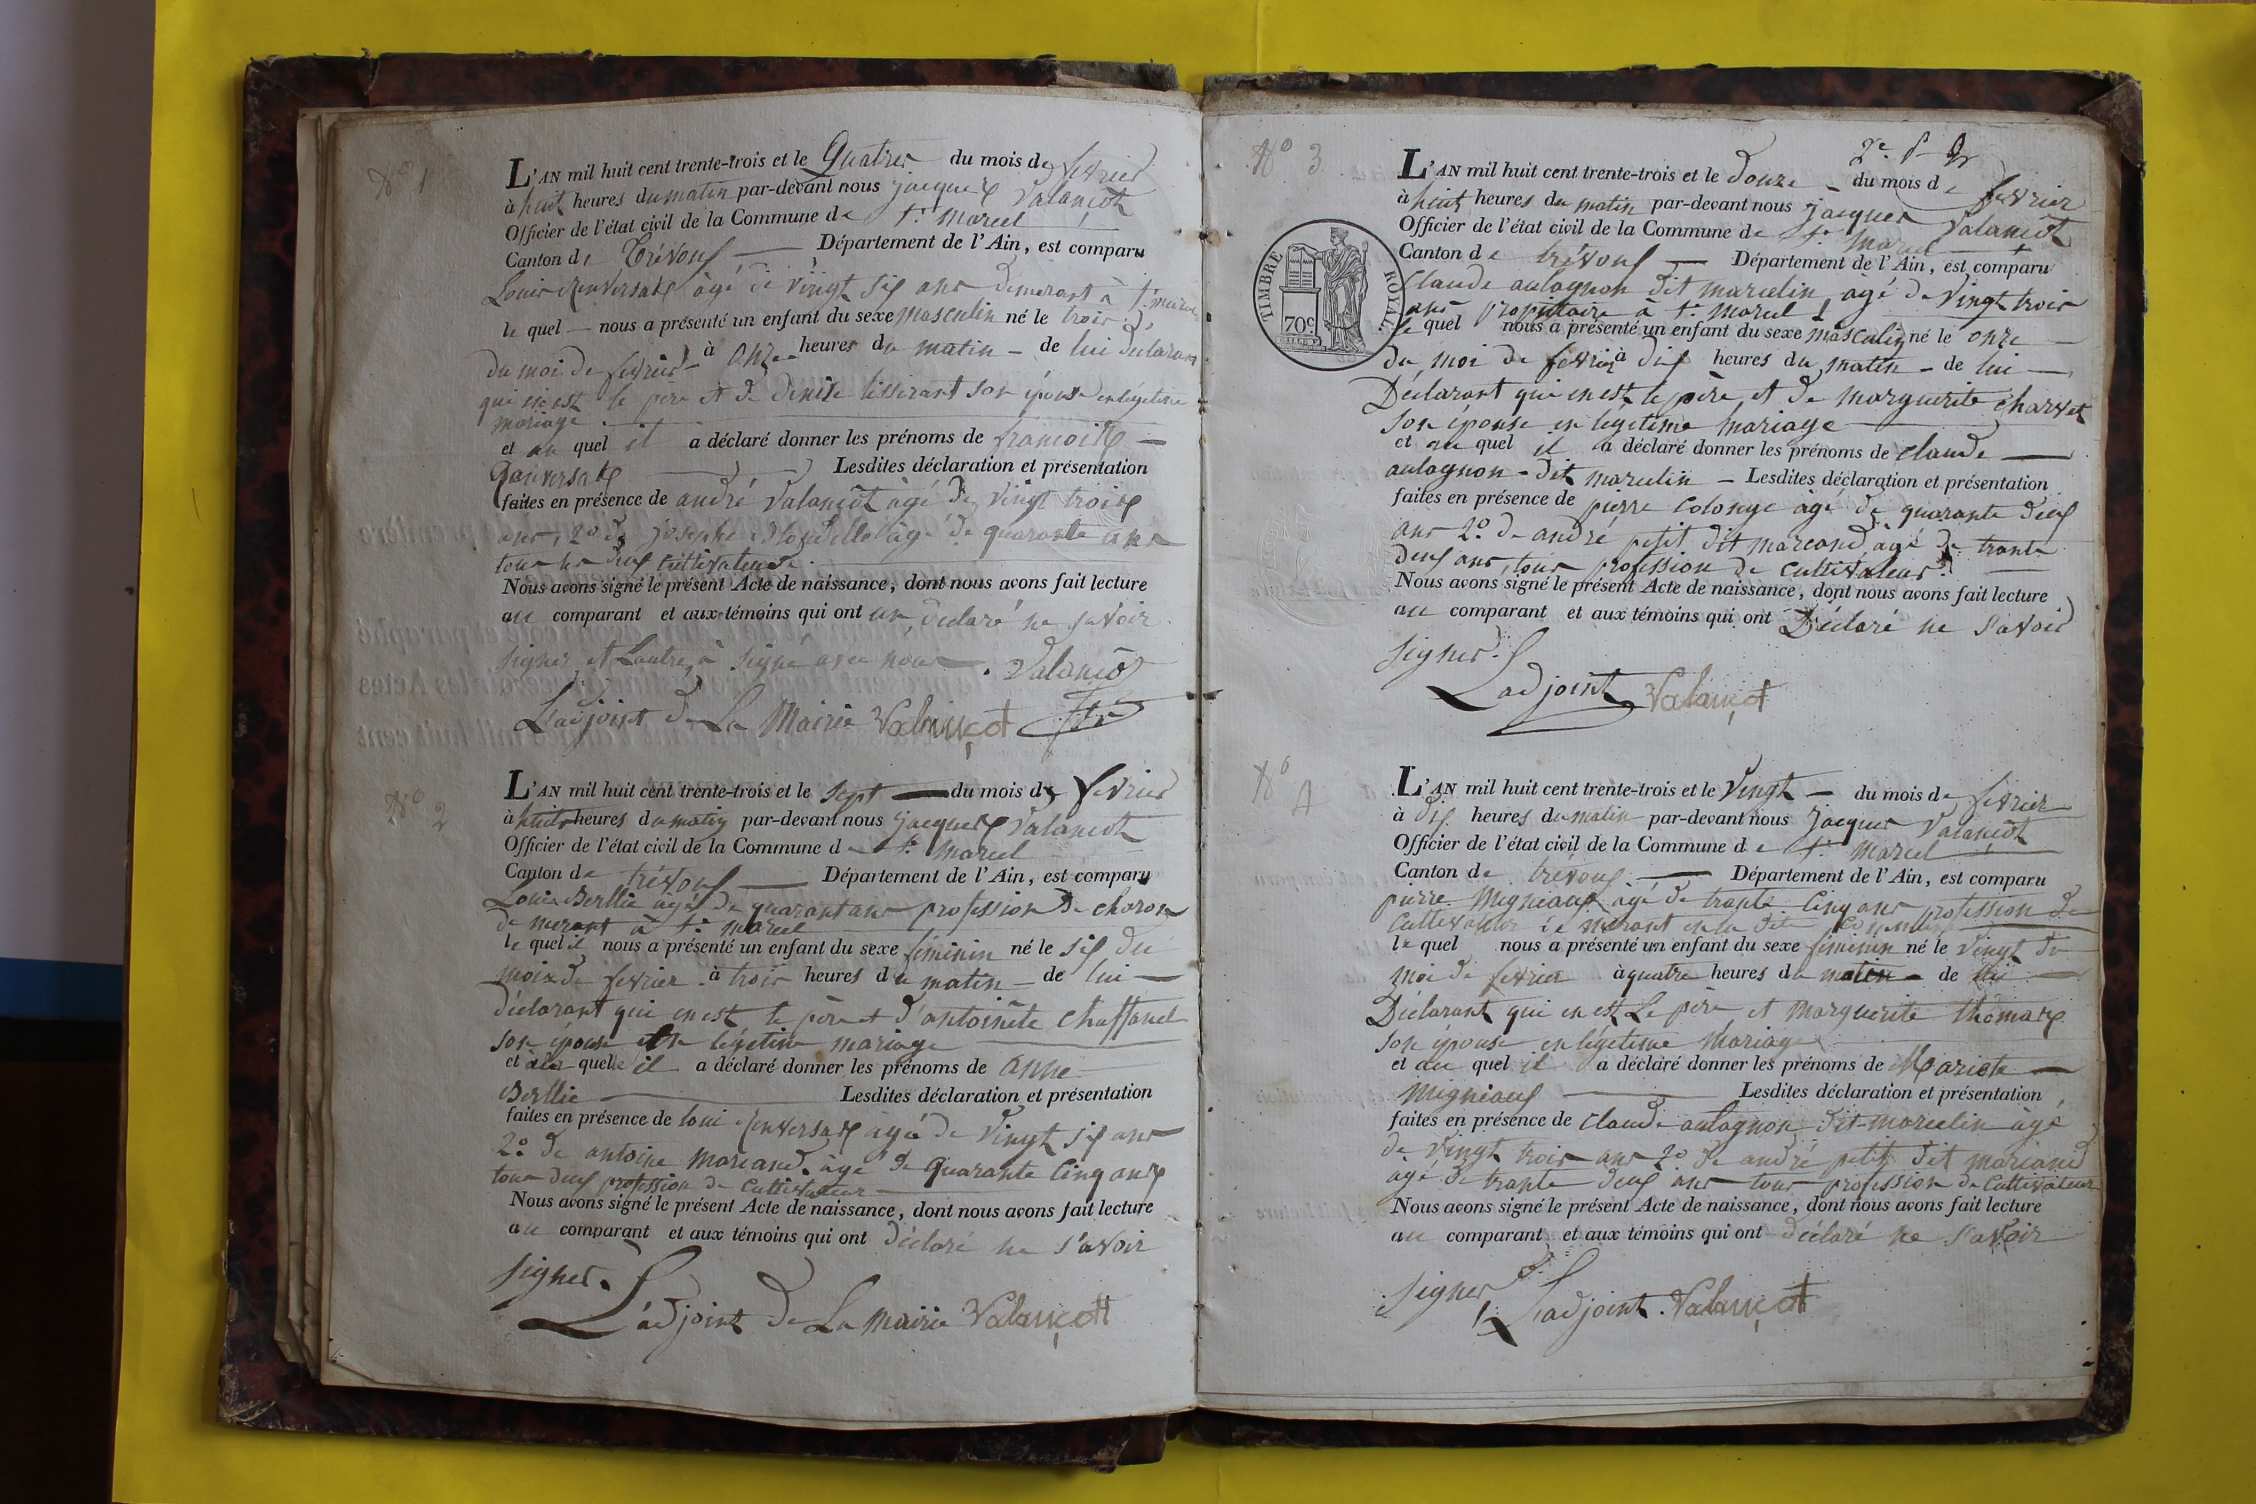 N° 1
L'AN mil huit cent trente-trois et le Quatres du mois de fevrier
à huit heures du matin par-devant nous jacques Valançot
Officier de l'état civil de la Commune de St. marcel
Canton de Trévoux Département de l'Ain, est comparu
Louis Renversade âgé de vingt six ans demerant à St. marcel
le quel nous a présenté un enfant du sexe masculin né le trois
du moi de fevrier à Onze heures du matin de lui declarant
qui en est le père et de denise tisserant son épouse en légétime
mariage
et au quel il a déclaré donner les prénoms de francoise
Lesdites déclaration et présentation
faites en présence de andré Valançot âgé de vingt trois
ans, 2° de josephe âgé de quarante ans
tous les deux cultivateurs
Nous avons signé le présent Acte de naissance, dont nous avons fait lecture
au comparant et aux témoins qui ont un déclaré ne savoir
signer et Lautre à signé avec nous. Valançot
L'adjoint de La Mairie Valançot
N° 2
L'AN mil huit cent trente-trois et le sept du mois de fevrier
à huit heures du matin par-devant nous jacques Valançot
Officier de l'état civil de la Commune de St. marcel
Canton de trévoux Département de l'Ain, est comparu
Louis Berllie agé de quarant ans profession de charon
de merant à St. marcel
le quel il nous a présenté un enfant du sexe féminin né le six du
moix de fevrier à trois heures du matin de lui
déclarant qui en est le père et d'antoinete Chaffanel
son épouse en légétime mariage
et à la quelle il a déclaré donner les prénoms de anne
Berllie Lesdites déclaration et présentation
faites en présence de loui âgé de vingt six ans
2° de antoine marcand âgé de quarante cinq ans
tous deux profession de cultivateur
Nous avons signé le présent Acte de naissance, dont nous avons fait lecture
au comparant et aux témoins qui ont déclaré ne s'avoir
signer.
L'adjoint de La mairie Valançot
2e. f
N° 3
L'AN mil huit cent trente-trois et le douze du mois de fevrier
à huit heures du matin par-devant nous jacques Valançot
Officier de l'état civil de la Commune de St. marcel
Canton de trévoux Département de l'Ain, est comparu
TIMBRE ROYAL.
70c.
Claude aulagnon dit marcelin agé de vingt trois
ans propietaire à St. marcel
le quel nous a présenté un enfant du sexe masculin né le onze
du moi de fevrier à dix heures du matin de lui
Déclarant qui en est le père et de marguerite charvet
son épouse en légétime mariage
et au quel il a déclaré donner les prénoms de claude
aulagnon dit marcelin Lesdites déclaration et présentation
faites en présence de pierre colonge âgé de quarante deux
ans 2° de andré petit dit marcand, agé de trante
deux ans, tous profession de cultivateur.
Nous avons signé le présent Acte de naissance, dont nous avons fait lecture
au comparant et aux témoins qui ont Déclaré ne s'avoir
signer.
L'adjoint Valançot
N° 4
L'AN mil huit cent trente-trois et le Vingt du mois de fevrier
à dix heures du matin par-devant nous jacques Valançot
Officier de l'état civil de la Commune de St. marcel
Canton de trévoux Département de l'Ain, est comparu
pierre Migniaux âgé de trante Cinq ans profession de
Cultivateur de merant en la dite Commune
le quel nous a présenté un enfant du sexe féminin né le vingt du
moi de fevrier à quatre heures du matin de lui
Déclarant qui en est Le père et Marguerite thomas
son épouse en légétime mariage
et au quel il a déclaré donner les prénoms de Mariete
Migniaux Lesdites déclaration et présentation
faites en présence de claude aulagnon dit marcelin âgé
de vingt trois ans 2° de andré petit dit marcand
agé de trante deux ans tous profession de Cultivateur
Nous avons signé le présent Acte de naissance, dont nous avons fait lecture
au comparant et aux témoins qui ont déclaré ne s'avoir
signer
L'adjoint. Valançot